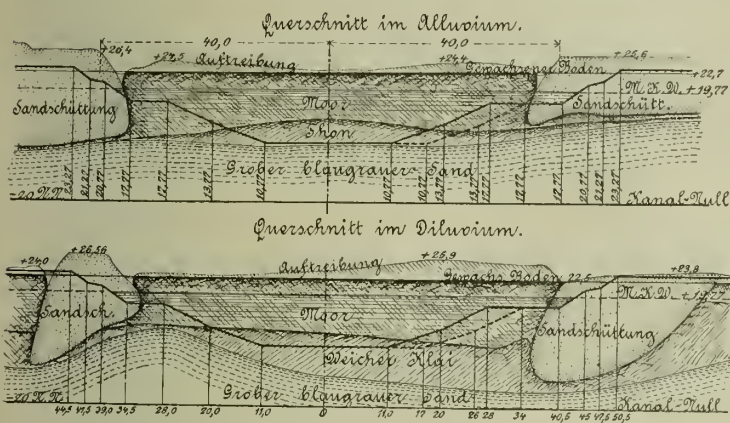 Querschnitt im Alluvium.
+26,4 40,0 40,0 +25,6
Auftreibung +24,4 Gewachsener Boden +22,7
M. K. W. +19,77
Sandschüttung Moor Sandschütt.
Thon
Grober blaugrauer Sand
23,27 21,27 20,77 17,77 12,77 13,77 10,77 10,77 10,77 13,77 12,77 20,77 21,27 23,27
Kanal-Null
Querschnitt im Diluvium.
+24,0 +26,56 Auftreibung +25,9 +23,8
Gewachs. Boden 22,5
M. K. W. +19,77
Sandsch. Moor Sandschüttung
Weicher Klai
20 N.N. Grober blaugrauer Sand Kanal-Null
44,5 41,5 39,0 34,5 28,0 20,0 11,0 0 11,0 17 20 26 28 34 40,5 45 47,5 50,5